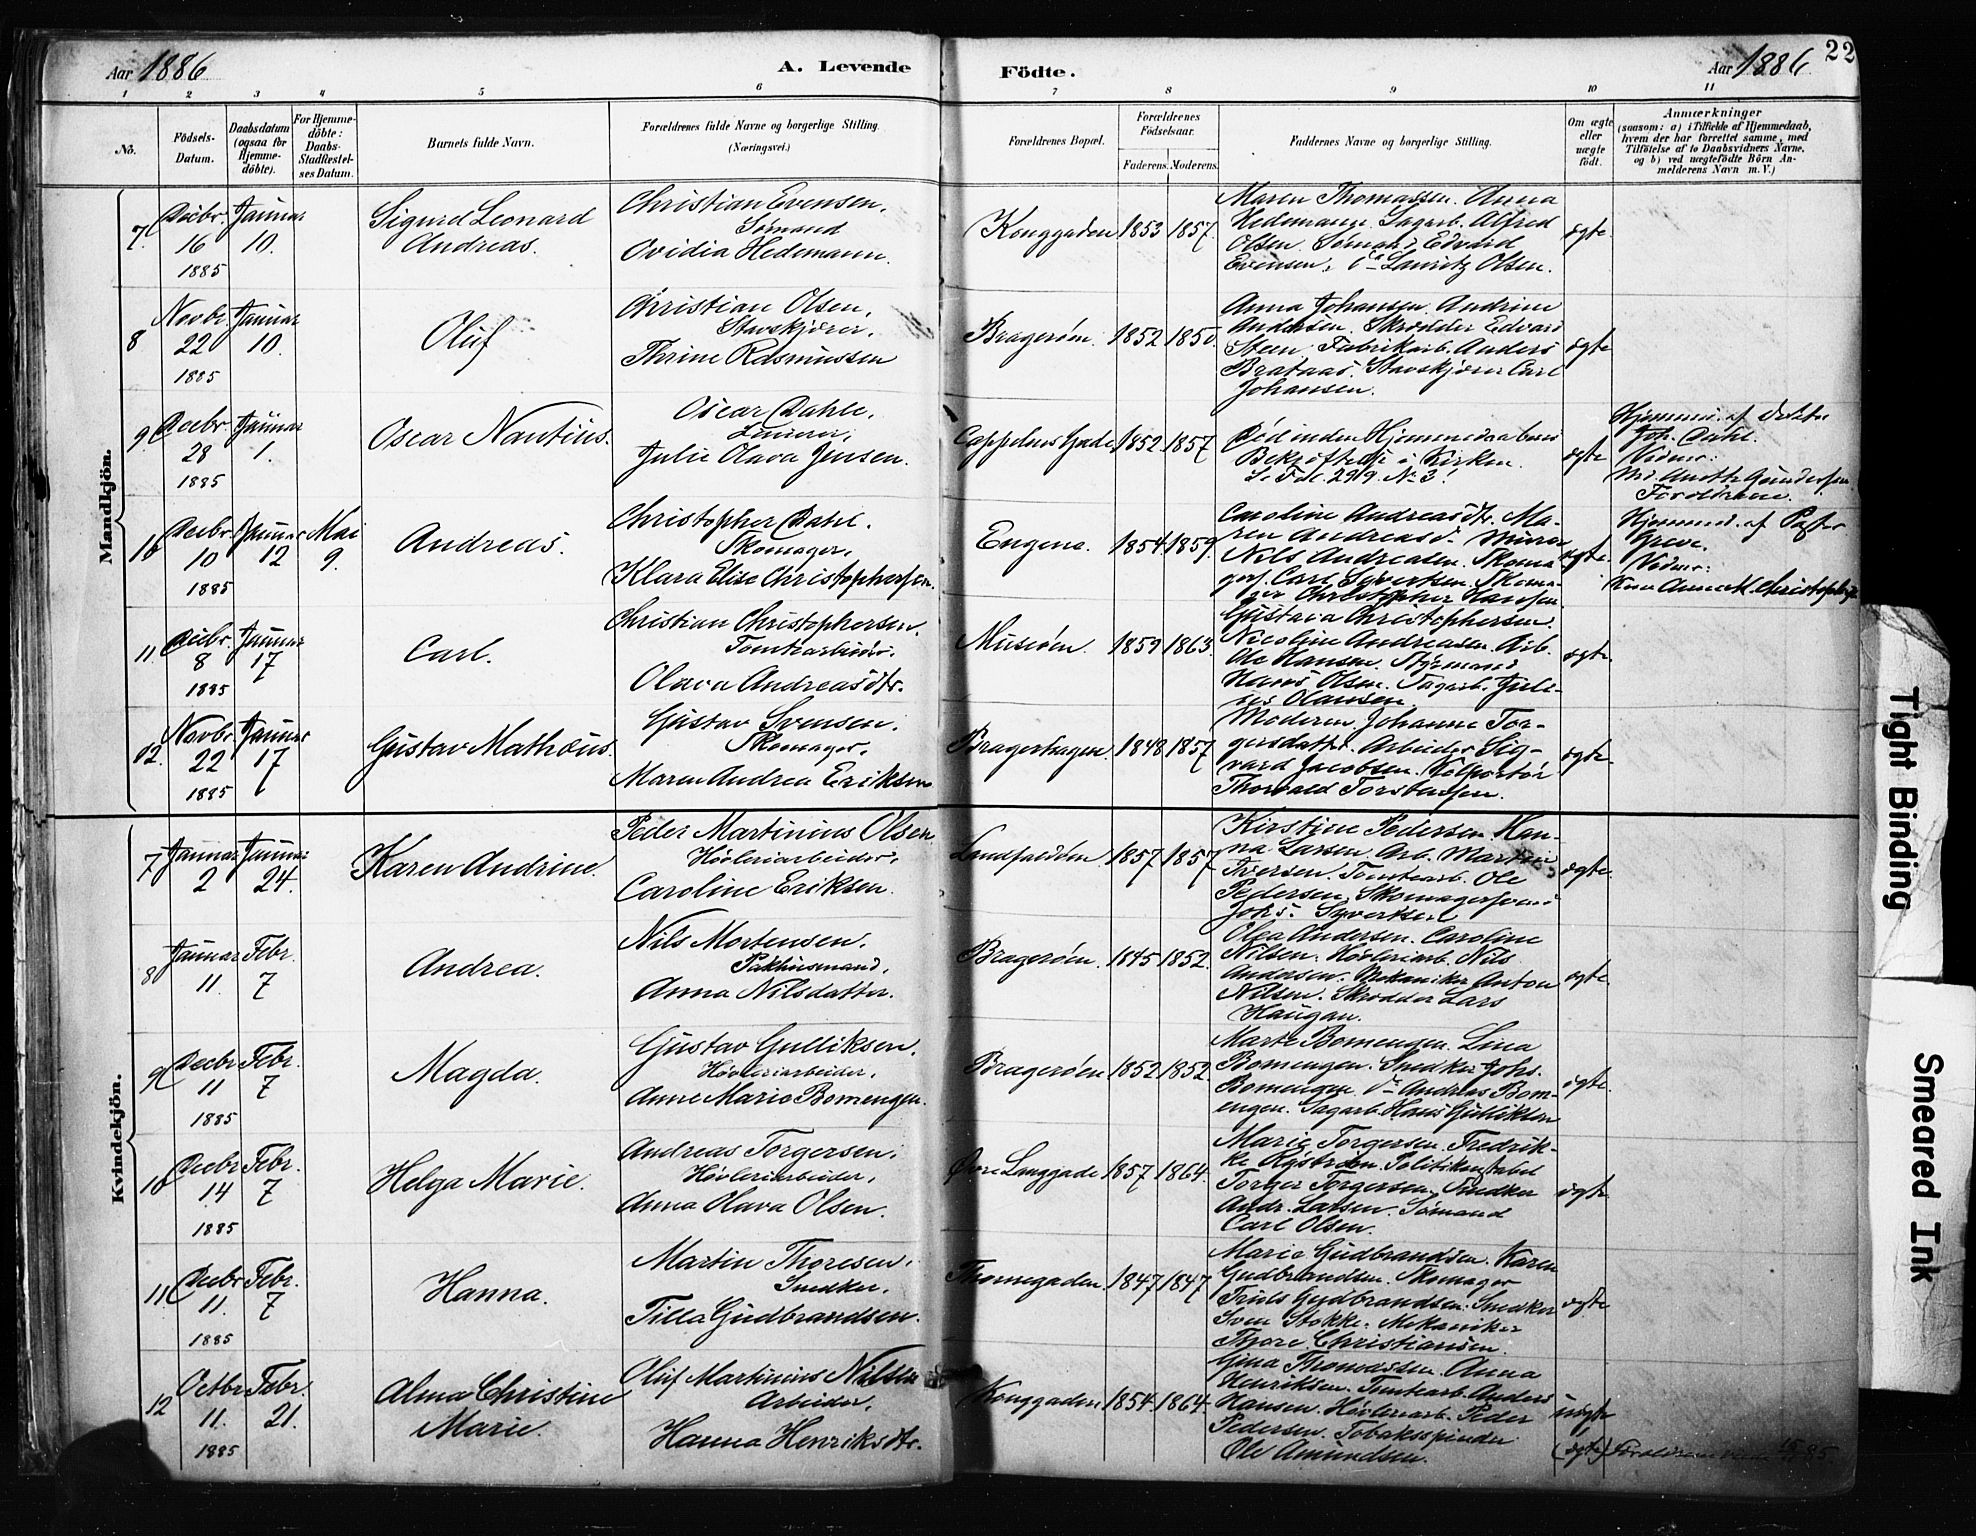 Aar 1886
A. Levende
Födte.
Aar 1886
22
1 2 3 4 5 6 7 8 9 10 11
No.
Födsels-
Datum.
Daabsdatum
(ogsaa for
Hjemme-
döbte).
For Hjemme-
döbte:
Daabs-
Stadfæstel-
ses Datum.
Barnets fulde Navn.
Forældrenes fulde Navne og borgerlige Stilling.
(Næringsvei.)
Forældrenes Bopæl.
Forældrenes
Fødselsaar.
Faderens. Moderens.
Faddernes Navne og borgerlige Stilling.
Om ægte
eller
uægte
födt.
Anmærkninger
(saasom: a) i Tilfælde af Hjemmedaab,
hvem der har forrettet samme, med
Tilföielse af to Daabsvidners Navne,
og b) ved uægtefödte Börn An-
melderens Navn m. V.)
Mandkjön.
7. Decbr. 16 1885
Januar 10.
Sigurd Leonard
Andreas.
Christian Evensen,
Sømand
Ovidia Hedemann.
Konggaden 1853 1857.
Maren Thomassen. Anna
Hedemann. Sagarb. Alfred
Olsen. Sømand Edvard
Evensen, Lauritz Olsen.
ægte
8 Novbr. 22 1885
Januar 10.
Oluf
Christian Olsen,
Stavskjører,
Thrine Rasmussen
Bragerøen. 1852 1850.
Anna Johansen. Andrine
Andersen. Skrædder Edvard
Steen. Fabrikarb. Anders
Brataas. Stavskjører Carl
Johansen.
ægte
9. Decbr 28 1885
Januar 1.
Oscar Nautius.
Oscar Dahle,
Julie Olava Jensen.
Cappelens Gade 1852 1857
Død inden Hjemmedaabens
Bekræftelse i Kirken.
S. Fol. 299. No 3.
ægte
Hjemmed. af
Joh. Dahl.
Vidner:
Gundersen
Forældrene.
10 Decbr 10 1885
Januar 12
Mai 9.
Andreas.
Christopher Dahl.
Skomager,
Klara Elise Christophersen.
Engene. 1854 1859.
Caroline Andreasdtr. Ma-
ren Andreasd. Murer
Nils Andreasen. Skoma
gers. Carl Syvertsen. Skoma-
ger Christopher Hansen.
ægte.
Hjemmed. af Pastor
Greve.
Vidner:
11. Decbr. 8 1885
Januar 17
Carl.
Christian Christophersen.
Tomtearbeider.
Olava Andreasdtr.
Museøen. 1859 1863.
Gustava Christophersen.
Nicoline Andreasen. Arb.
Ole Hansen. Styrmand
Hans Olsen. Sagarb. Juli-
us Olausen.
ægte.
12. Novbr. 22 1885
Januar 17
Gustav Mathæus.
Gustav Svensen.
Skomager,
Maren Andrea Eriksen
Bragerhagen. 1848 1857
Moderen. Johanne Tor-
gersdatter. Arbeider Sig-
vard Jacobsen. Kolportør
Thorvald Torstensen.
ægte
Kvindekjön.
7 Januar 2
Januar 24.
Karen Andrine.
Peder Martinius Olsen
Høvleriarbeider,
Caroline Eriksen.
Landfaldøen. 1857 1857
Kirstine Pedersen. Han-
na Larsen. Arb. Martin
Iversen. Tomtearb. Ole
Pedersen. Skomagersvend
Johs. Syvertsen
ægte.
8 Januar 11.
Febr. 7
Andrea.
Nils Mortensen.
Pakhusmand,
Anna Nilsdatter.
Bragerøen. 1845 1852.
Olga Andersen. Caroline
Nilsen. Høvleriarb. Nils
Andersen. Mekaniker Anton
Nilsen. Skrædder Lars
Haugan.
ægte.
9 Decbr 11 1885
Febr. 7
Magda.
Gustav Gulliksen.
Høvleriarbeider,
Anne Marie Bomengen.
Bragerøen 1852 1852.
Marte Bomengen. Lina
Bomengen. Snedker Johs.
Bomengen. Andreas Bom-
engen. Sagarb. Hans Gulliksen
ægte.
10 Decbr 14 1885
Febr. 7
Helga Marie.
Andreas Torgersen,
Høvleriarbeider,
Anna Olava Olsen.
Øvre Langgade 1857 1864.
Marie Torgersen. Fredrik-
ke Politikonstabel
Torger Torgersen. Snedker
Andr. Larsen. Sømand
Carl Olsen.
ægte.
11. Decbr 11. 1885
Febr. 7
Hanna.
Martin Thoresen,
Snedker,
Tilla Gudbrandsen.
Thornegaden. 1847 1847
Marie Gudbrandsen. Karen
Gudbrandsen. Skomager
Truls Gudbrandsen. Snedker
Sven Stokke. Mekaniker
Thore Christiansen.
ægte
12 Octbr 11. 1885
Febr. 21.
Alma Christine
Marie.
Oluf Martinius Nilsen
Arbeider,
Hanna Henriksdtr.
Konggaden 1854. 1864.
Gina Thomassen. Anna
Henriksen. Tomtearb. Anders
Hansen. Høvleriarb. Peder
Pedersen. Tobaksspinder
Ole Amundsen.
uægte
(ægte)
Tight Binding
Smeared Ink